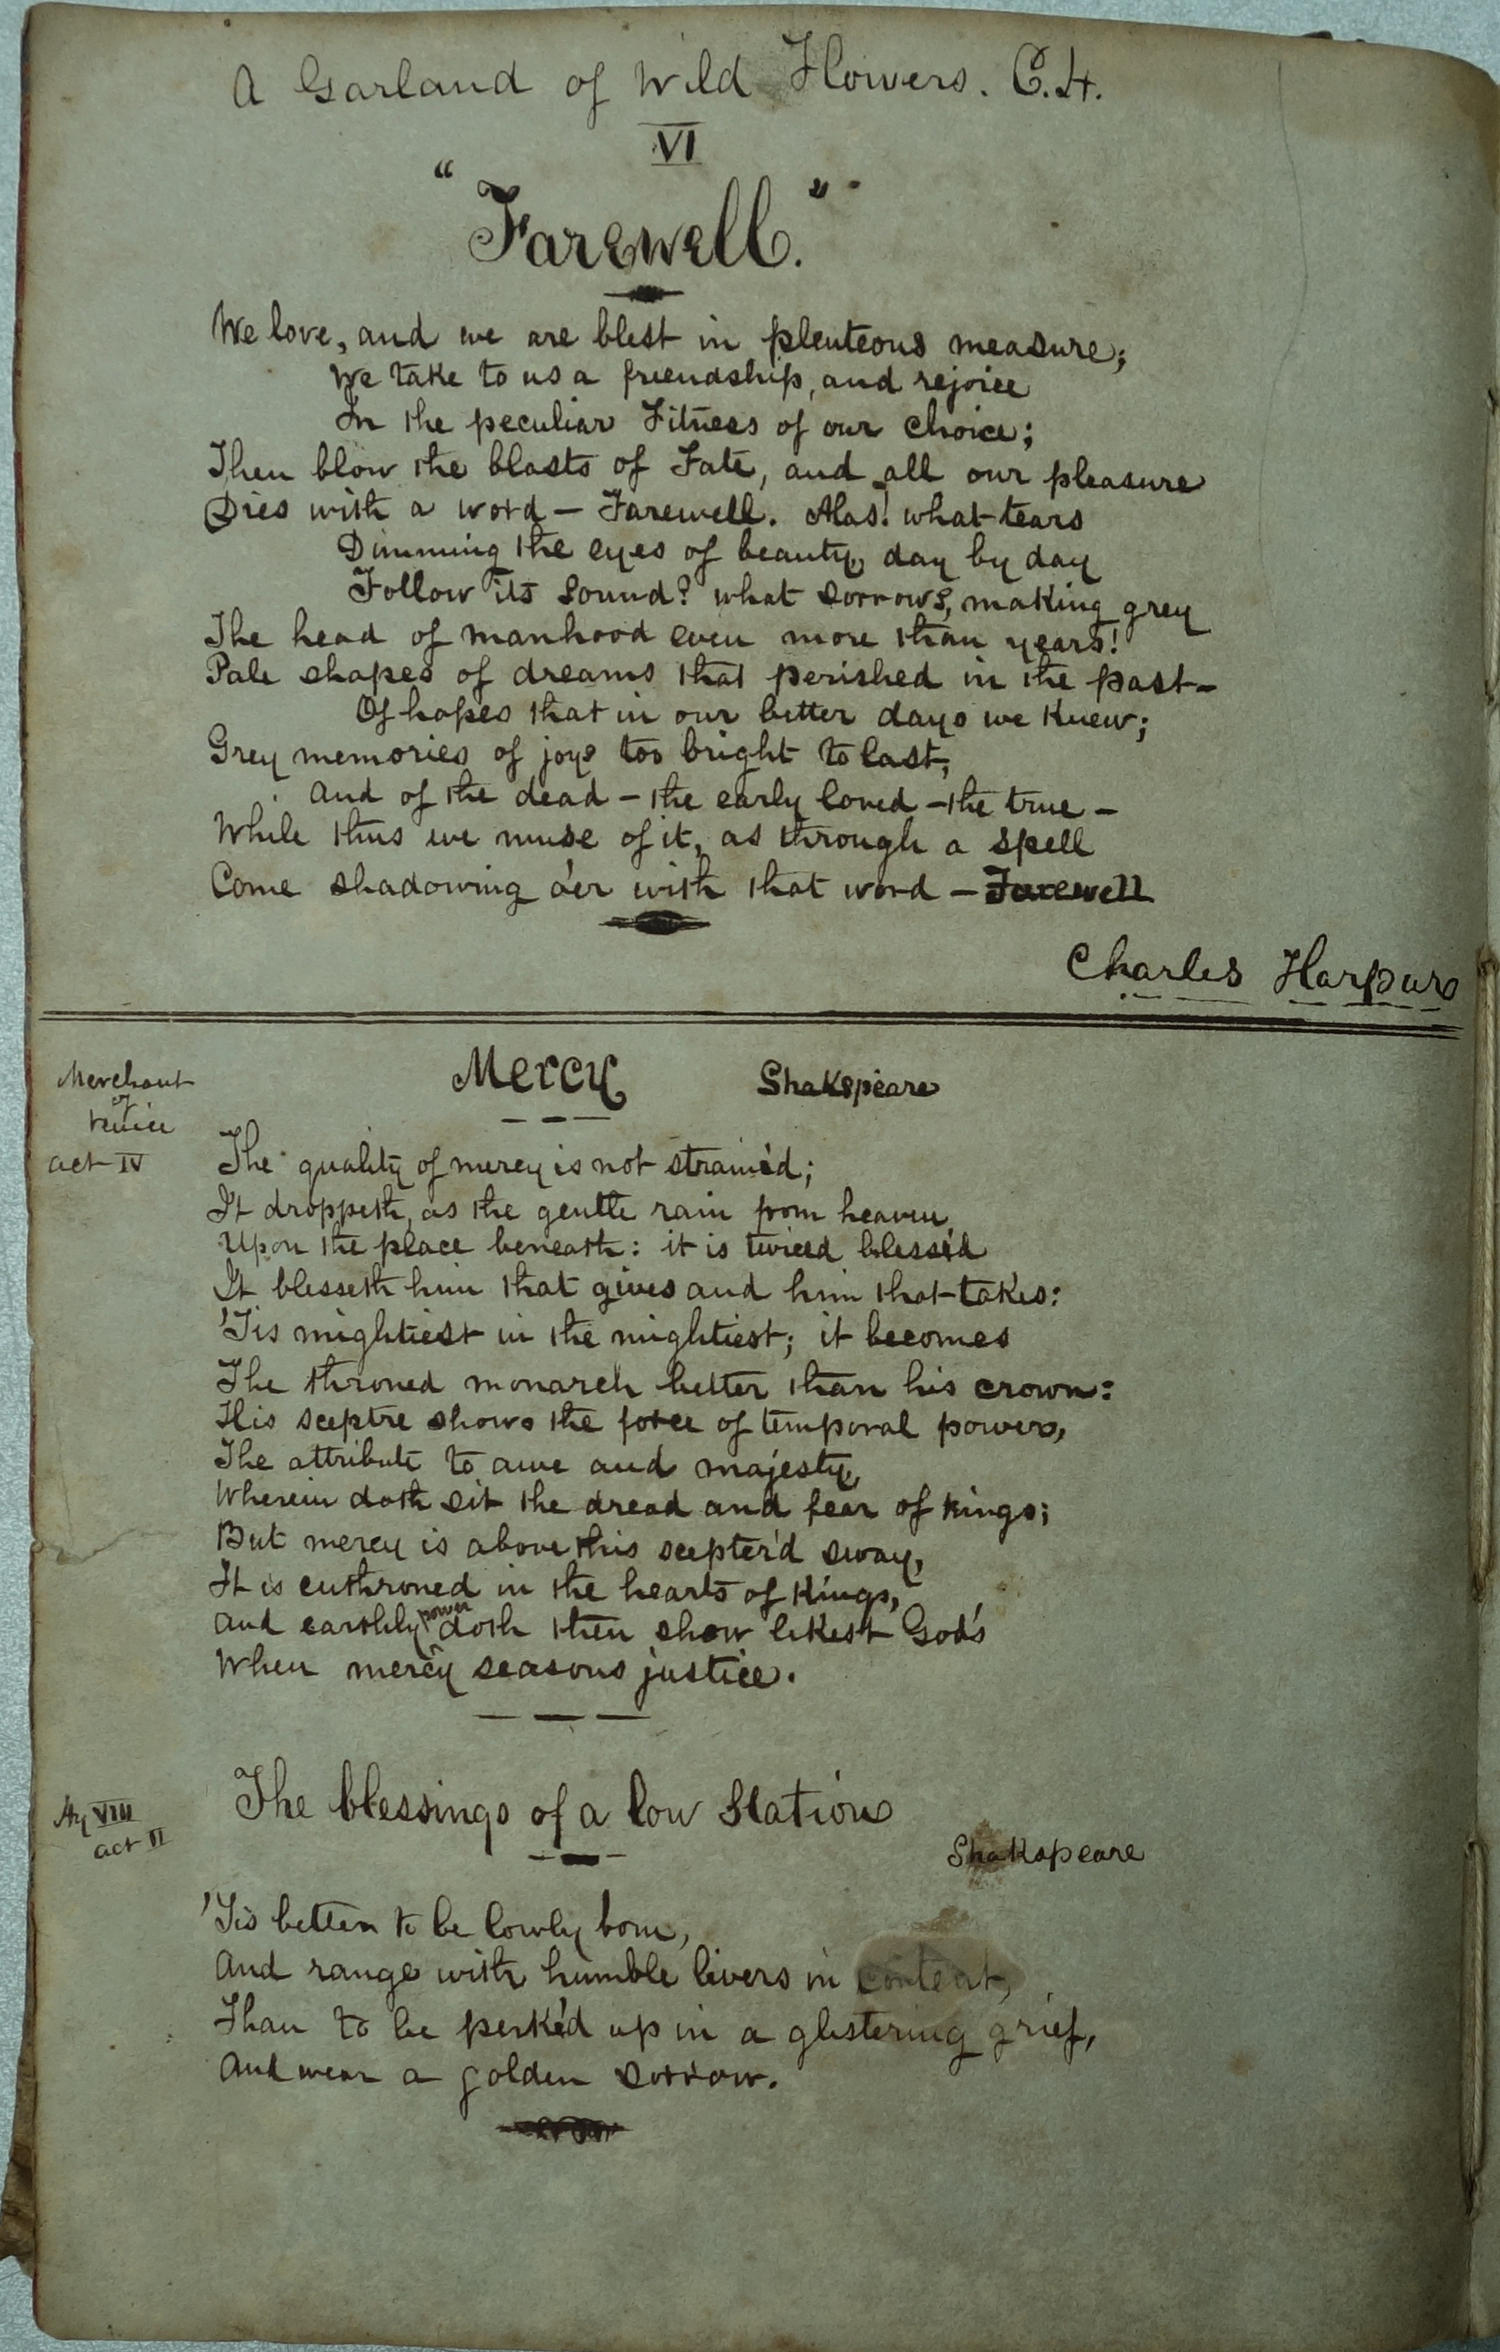 A Garland of Wild Flowers. C.H.
VI
"Farewell."
We love, and we are blest in plenteous measure;
We take to us a friendship, and rejoice
In the peculiar Fitness of our choice;
Then blow the blasts of Fate, and all our pleasure
Dies with a word — Farewell. Alas! what tears
Dimming the eyes of beauty, day by day
Follow its sound? what sorrows, making grey
The head of manhood even more than years!
Pale shapes of dreams that perished in the past—
Of hopes that in our better days we knew;
Grey memories of joys too bright to last,
And of the dead — the early loved — the true —
While thus we muse of it, as through a spell
Come shadowing o'er with that word — Farewell
Charles Harpur
Mercy Shakspeare
Merchant
of
Venice
Act IV
The quality of mercy is not strain'd;
It droppeth, as the gentle rain from heaven
Upon the place beneath: it is twiced bless'd
It blesseth him that gives and him that takes:
'Tis mightiest in the mightiest; it becomes
The throned monarch better than his crown:
His sceptre shows the force of temporal power,
The attribute to awe and majesty,
Wherein doth sit the dread and fear of kings;
But mercy is above this scepter'd sway,
It is enthroned in the hearts of Kings,
And earthly power doth then show likest God's
When mercy seasons justice.
Hy VIII
act II
The blessings of a low Station
Shakspeare
'Tis better to be lowly born,
And range with humble livers in content,
Than to be perk'd up in a glistering grief,
And wear a golden sorrow.